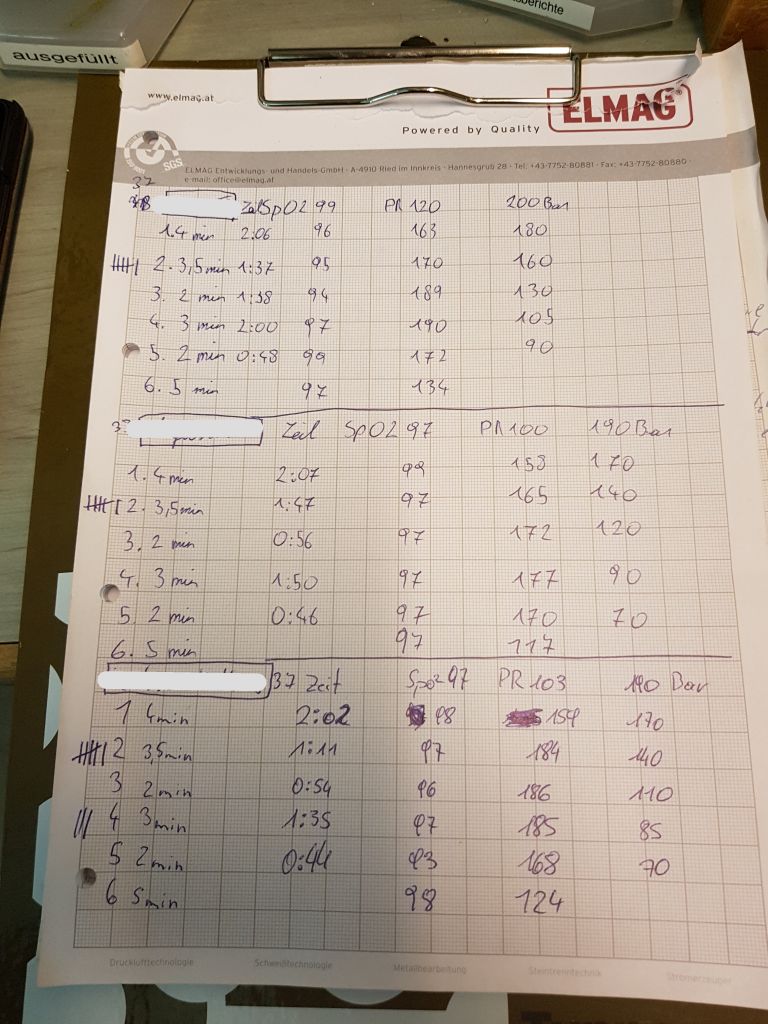 ausgefüllt
sberichte
www.elmag.at
ELMAG®
Powered by Quality
SGS
ELMAG Entwicklungs- und Handels-GmbH · A-4910 Ried im Innkreis · Hannesgrub 28 · Tel: +43-7752-80881 · Fax: +43-7752-80880 ·
e-mail: office@elmag.at
37
Zeit SpO2 99 PR 120 200 Bar
1. 4 min 2:06 96 163 180
2. 3,5min 1:37 95 170 160
3. 2 min 1:38 94 189 130
4. 3 min 2:00 97 190 105
5. 2 min 0:48 99 172 90
6. 5 min 97 134
Zeit SpO2 97 PR 100 190 Bar
1. 4min 2:07 99 158 170
2. 3,5min 1:47 97 165 140
3. 2 min 0:56 97 172 120
4. 3 min 1:50 97 177 90
5. 2 min 0:46 97 170 70
6. 5 min 97 117
37 Zeit Spo2 97 PR 103 190 Bar
1 4min 2:02 98 159 170
2 3,5min 1:11 97 184 140
3 2min 0:54 96 186 110
4 3min 1:35 97 185 85
5 2min 0:44 93 168 70
6 5min 98 124
Drucklufttechnologie Schweißtechnologie Metallbearbeitung Steintrenntechnik Stromerzeuger